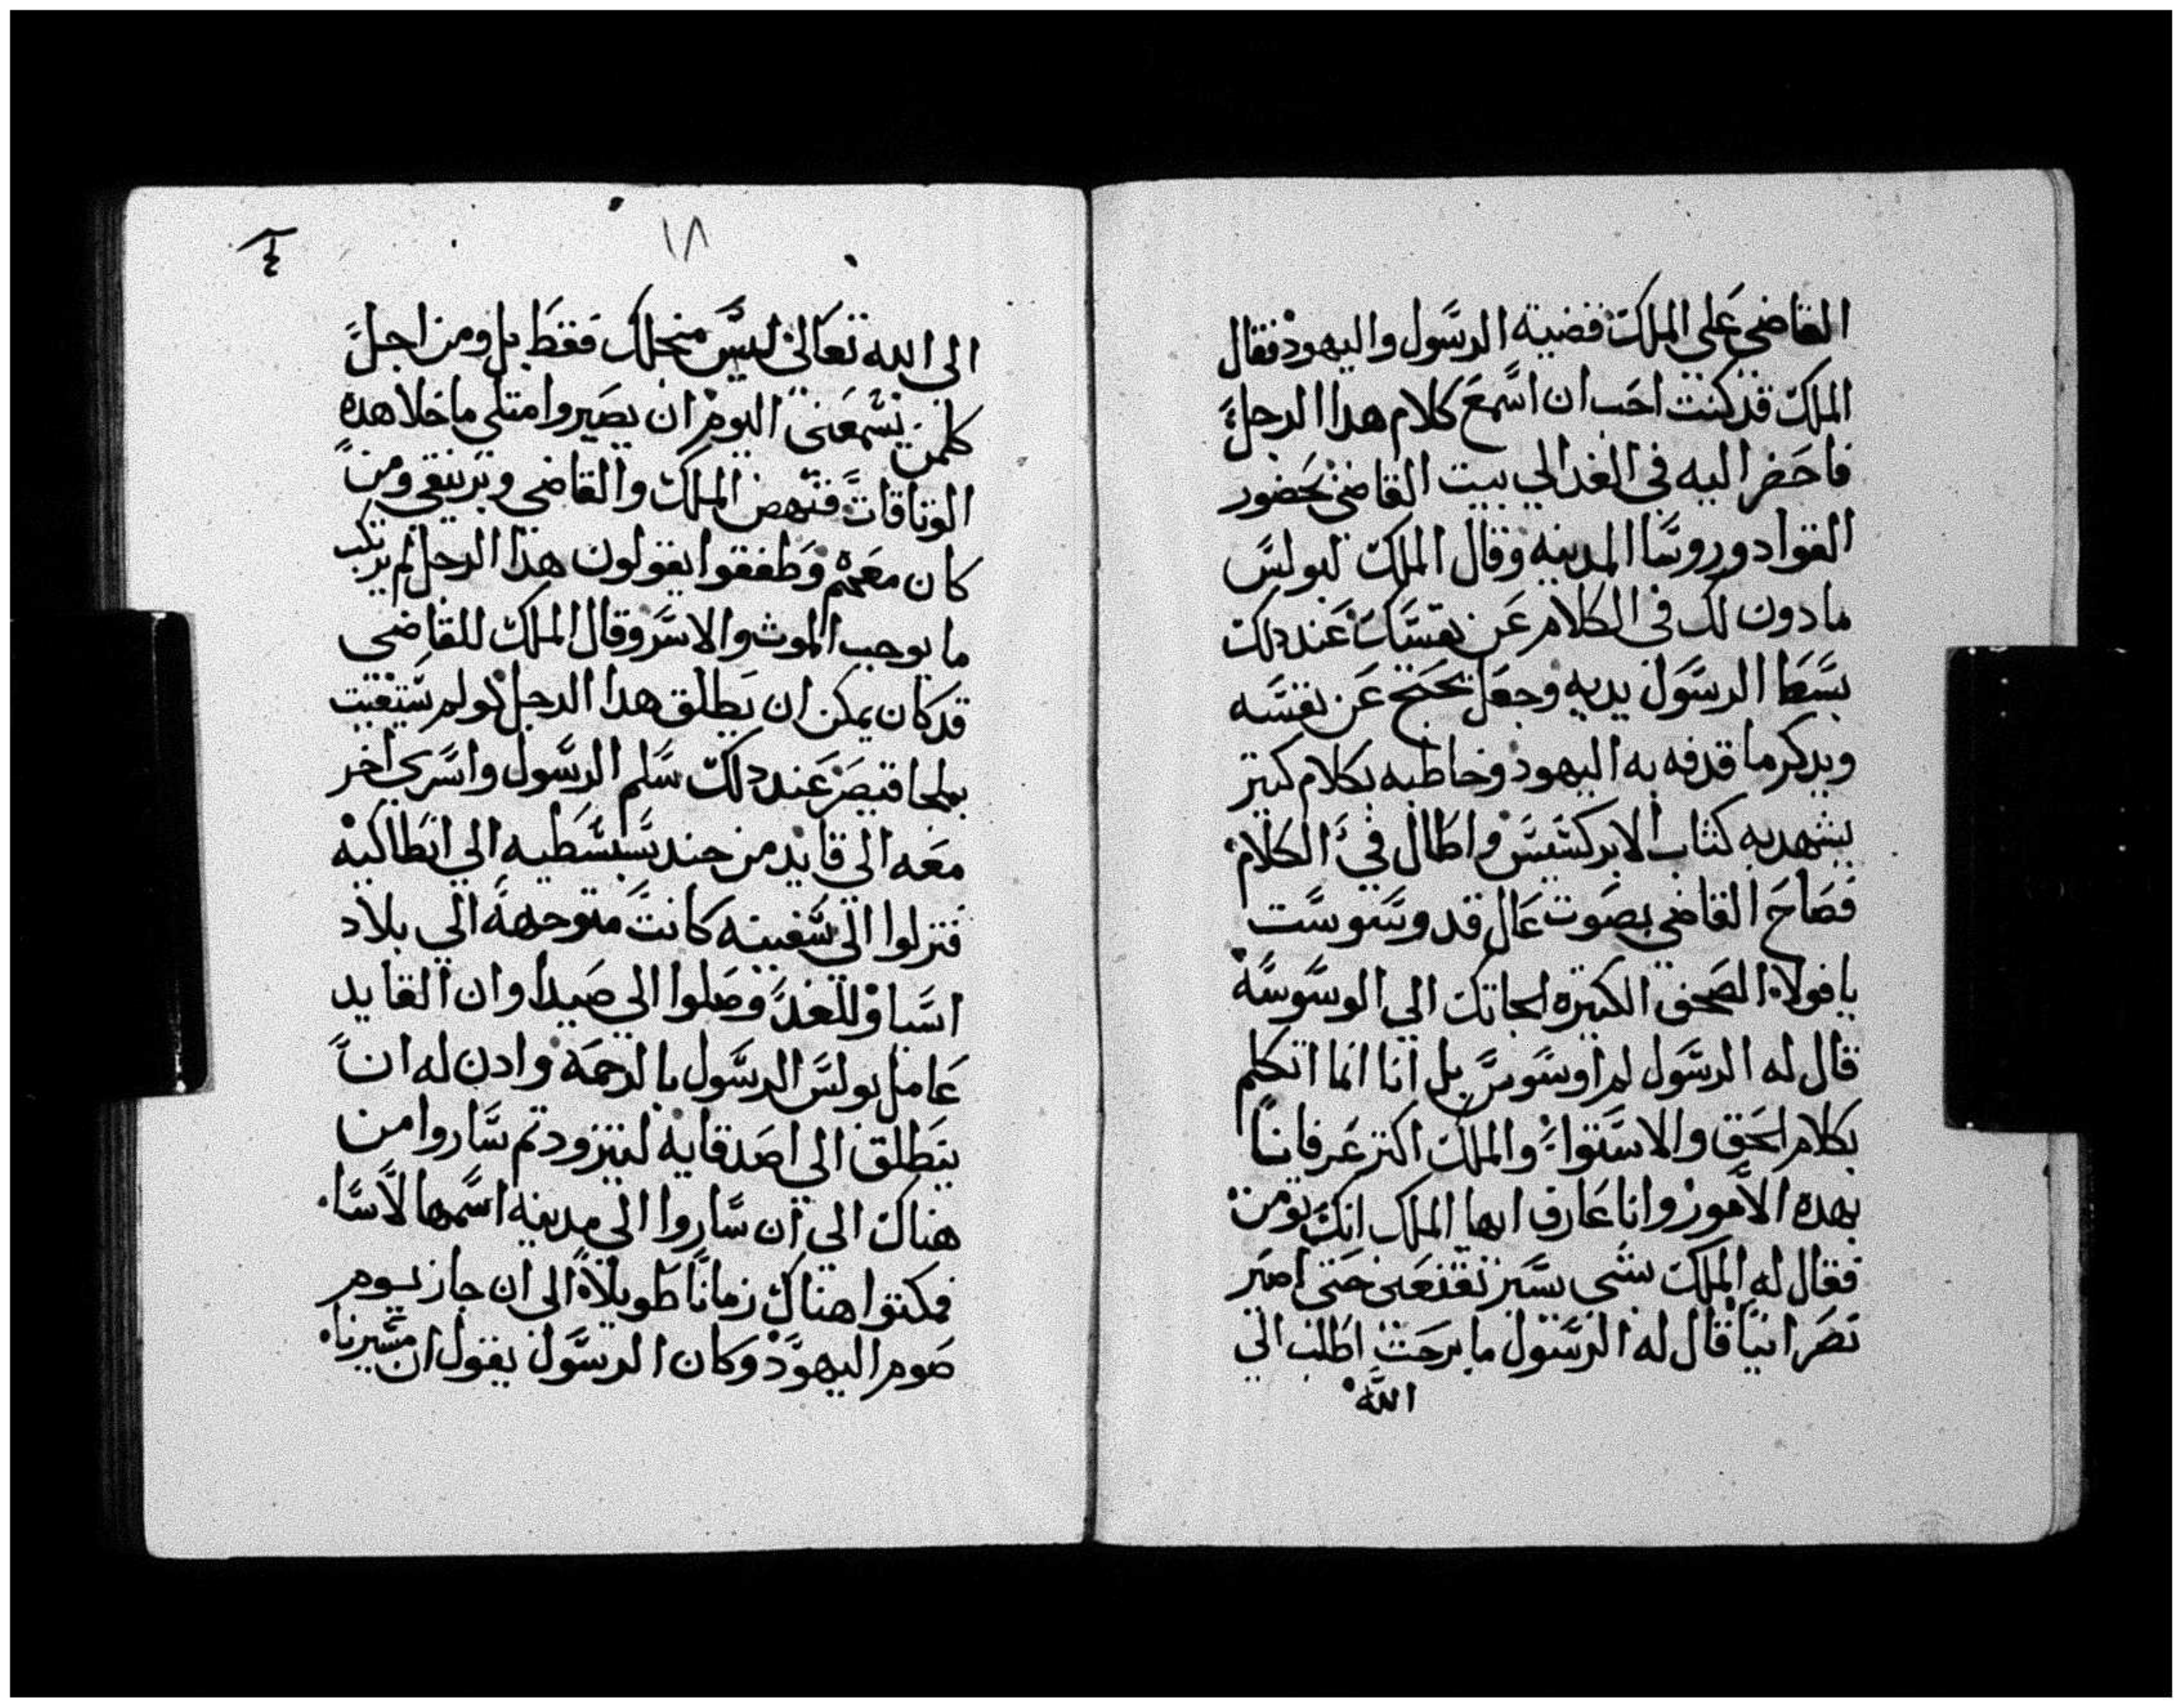 القاضي علي الملك قضية الرسول واليهود فقال
الملك قد كنت احب ان اسمع كلام هدا الرجل
فاحضر اليه في الغد الي بيت القاضي بحضور
القواد وروسا المدينه وقال الملك لبولس
مادون لك في الكلام عن نفسك عند دلك
بسط الرسول يديه وجعل يحتج عن نفسه
ويدكر ما قدفه به اليهود وخاطبه بكلام كتير
يشهد به كتاب الابركسيس واطال في الكلام
فصاح القاضي بصوت عال قد وسوست
يا فولا الصحف الكتيره الجاتك الي الوسوسة
قال له الرسول لم اوسوس بل انا انما اتكلم
بكلام الحق والاستوا والملك اكتر عرفانا
بهده الامور وانا عارف ايها الملك انك تومن
فقال له الملك بشي يسير تقنعني حتي اصير
نصرانيا قال له الرسول ما برحت اطلب الي
الله
١٨
الي الله تعالي ليس منجلك فقط بل ومن اجل
كلمن يسمعني اليوم ان يصيروا متلي ما خلا هده
الوتاقات فنهض الملك والقاضي وبرنيقي ومن
كان معهم وطفقوا يقولون هدا الرجل لم يرتكب
ما يوجب الموت والاسر وقال الملك للقاضي
قد كان يمكن ان يطلق هدا الرجل لو لم يستغيت
بملجا قيصر عند دلك سلم الرسول واسري اخر
معه الي قايد من جند سبسطيه الي انطاكيه
فنزلوا الي سفينه كانت متوجهة الي بلاد
اسيا وللغد وصلوا الي صيدا وان القايد
عامل بولس الرسول بالرحمة وادن له ان
ينطلق الي اصدقايه ليتزود تم ساروا من
هناك الي ان ساروا الي مدينه اسمها لاسا
فمكتوا هناك زمانا طويلا الي ان جاز يوم
صوم اليهود وكان الرسول يقول ان مسيرنا